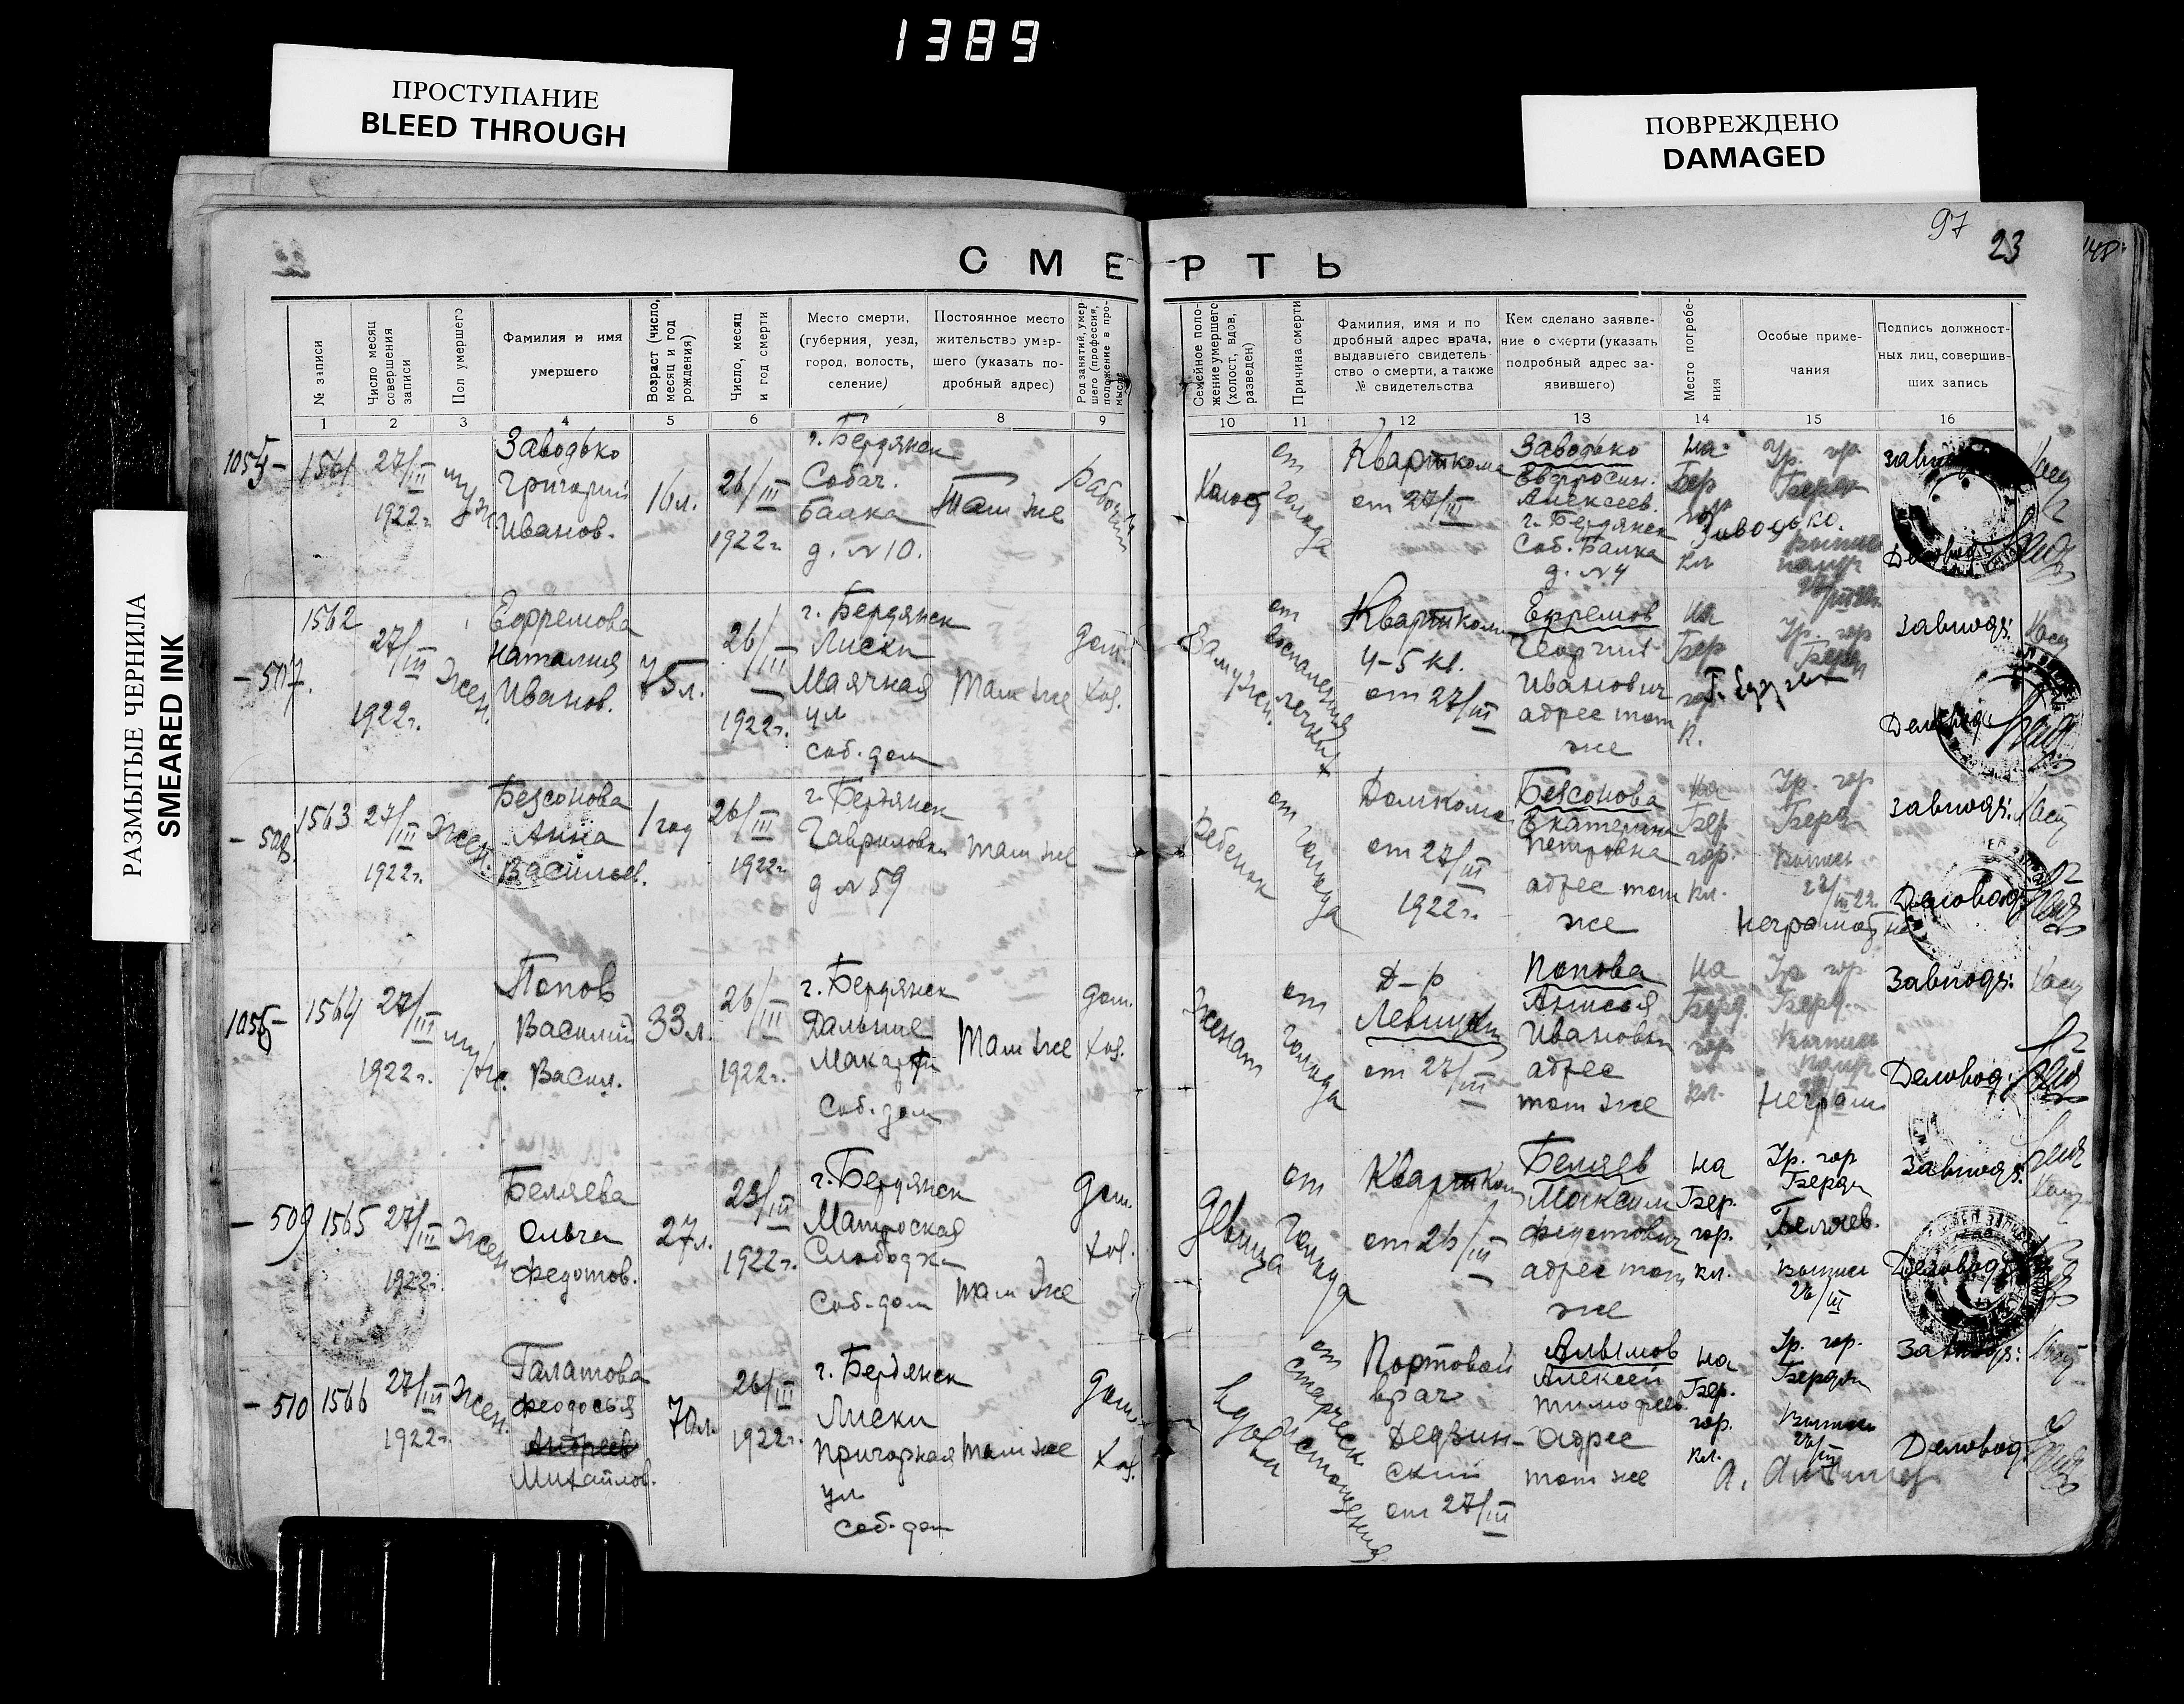 1389
ПРОСТУПАНИЕ
BLEED THROUGH
ПОВРЕЖДЕНО
DAMAGED
РАЗМЫТЫЕ ЧЕРНИЛА
SMEARED INK
97
23
СМЕРТЬ
№ записи
Число месяц совершения записи
Пол умершего
Фамилия и имя умершего
Возраст (число, месяц и год рождения)
Число, месяц и год смерти
Место смерти, (губерния, уезд, город, волость, селение)
Постоянное место жительство умершего (указать подробный адрес)
Род занятий, умершего (профессия, положение в промысле
Семейное положение умершего (холост, вдов, разведен)
Причина смерти
Фамилия, имя и подробный адрес врача, выдавшего свидетельство о смерти, а также № свидетельства
Кем сделано заявление о смерти (указать подробный адрес заявившего)
Место погребения
Особые примечания
Подпись должностных лиц, совершивших запись
1 2 3 4 5 6 7 8 9 10 11 12 13 14 15 16
1561
27/III 1922г.
муж.
Заводько Григорий Иванов.
16л.
26/III 1922г.
г. Бердянск Собач. Балка д. №10.
Там же
Рабочий
Холост
от голода
Кварткома от 27/III
Заводько Евфросин. Алексеев. г. Бердянск Соб. Балка д. №4
на Бер гор кл
Гр. гор. Бердян
Заводько.
Деловод.
-507.
1562
27/III 1922г.
Жен.
Ефремова Наталия Иванов.
75л.
26/III 1922г.
г. Бердянск Лиски Маячная ул соб. дом
Там же
дом. хоз.
Замужн.
от воспаления легких
Кварткома 4-5 кв. от 27/III
Ефремов Георгий Иванович адрес тот же
на Бер гор К.
Гр. гор Бердя
Завподз:
Деловод
-508.
1563
27/III 1922г.
Жен.
Безсонова Анна Васильев.
1 год
26/III 1922г.
г. Бердянск Гавриловка д №59
Там же
—
Ребенок
от голода
Домкома от 27/III 1922г.
Безсонова Екатерина Петровна адрес тот же
на Бер. гор. кл.
Гр. гор Бердя
27/III 22г.
неграмотна
Завподз:
Деловод
1056-
1564
27/III 1922г.
муж.
Попов Василий Васил.
33л.
26/III 1922г.
г. Бердянск Дальние Макорты Соб. дом
Там же
дом. хоз.
Женат
от голода
Д-р Левицкий от 27/III
Попова Анисья Ивановна адрес тот же
на Берд. гор кл.
Гр гор Берд.
неграм
Завподз:
Деловод:
-509
1565
27/III 1922г.
Жен.
Беляева Ольга Федотов.
27л.
23/III 1922г.
г. Бердянск Матроская Слободка Соб. дом
Там же
дом. хоз.
Девица
от голода
Кварткома от 26/III
Беляев Максим Федотович адрес тот же
на Бер. гор. кл.
Гр. гор Бердя
Беляев.
Завподз:
Деловод
-510
1566
27/III 1922г.
Жен.
Галатова Феодосья Михайлов.
70л.
26/III 1922г.
г. Бердянск Лиски Пригорная ул соб. дом
Там же
дом. хоз.
Вдова
от старческ. истощения
Портовой врач от 27/III
Алымов Алексей Тимофеев. адрес тот же
на Бер. гор. кл.
Гр. гор. Бердян
Деловод